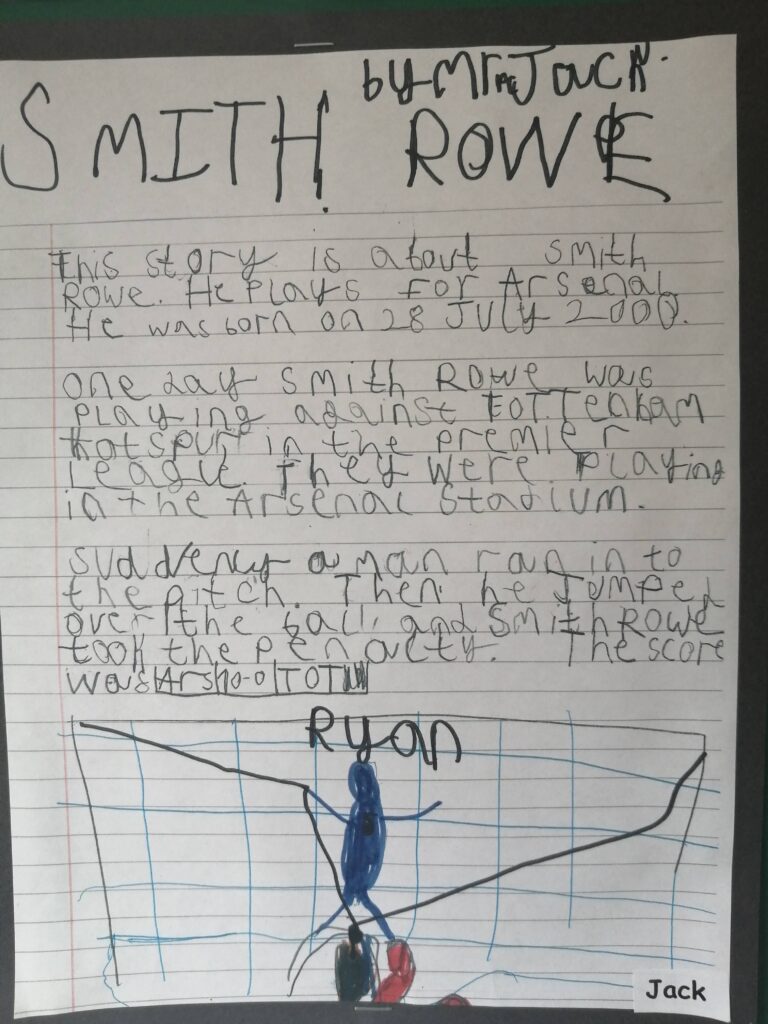 by Mr Jack.
SMITH ROWE
This story is about smith
Rowe. He plays for Arsenal
He was born on 28 July 2000.
one day smith Rowe was
playing against Tottenham
Hotspur in the premier
League. They were playing
in the Arsenal Stadium.
Suddenly a man ran in to
the pitch. Then he Jumped
over the ball and Smith Rowe
took the penalty. The score
was Ars 10-0 TOT
Ryan
Jack